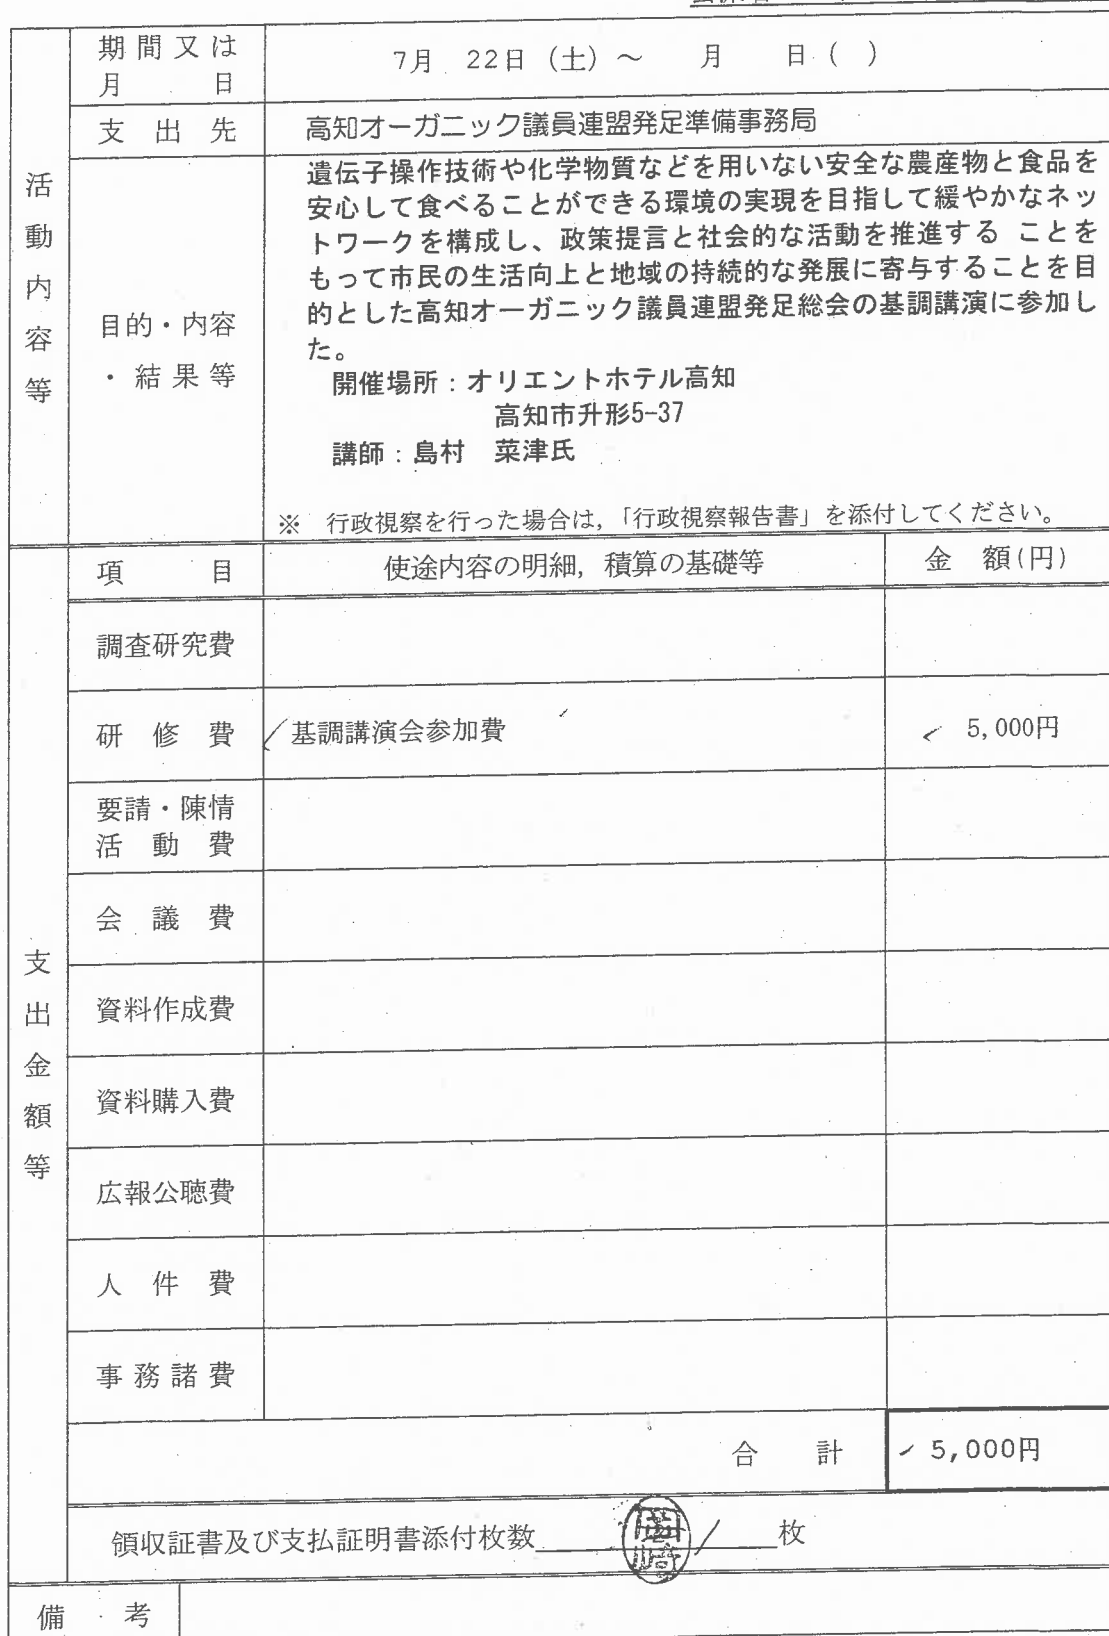 期間又は
月 日
7月 22日 (土) ～ 月 日 ( )
支出先
高知オーガニック議員連盟発足準備事務局
活動内容等
目的・内容
・結果等
遺伝子操作技術や化学物質などを用いない安全な農産物と食品を
安心して食べることができる環境の実現を目指して緩やかなネッ
トワークを構成し、政策提言と社会的な活動を推進する ことを
もって市民の生活向上と地域の持続的な発展に寄与することを目
的とした高知オーガニック議員連盟発足総会の基調講演に参加し
た。
開催場所：オリエントホテル高知
高知市升形5-37
講師：島村 菜津氏
※ 行政視察を行った場合は,「行政視察報告書」を添付してください。
支出金額等
項 目
使途内容の明細, 積算の基礎等
金 額(円)
調査研究費
研修費
基調講演会参加費
5,000円
要請・陳情
活動費
会議費
資料作成費
資料購入費
広報公聴費
人件費
事務諸費
合計
5,000円
領収証書及び支払証明書添付枚数 / 枚
岡﨑
備考